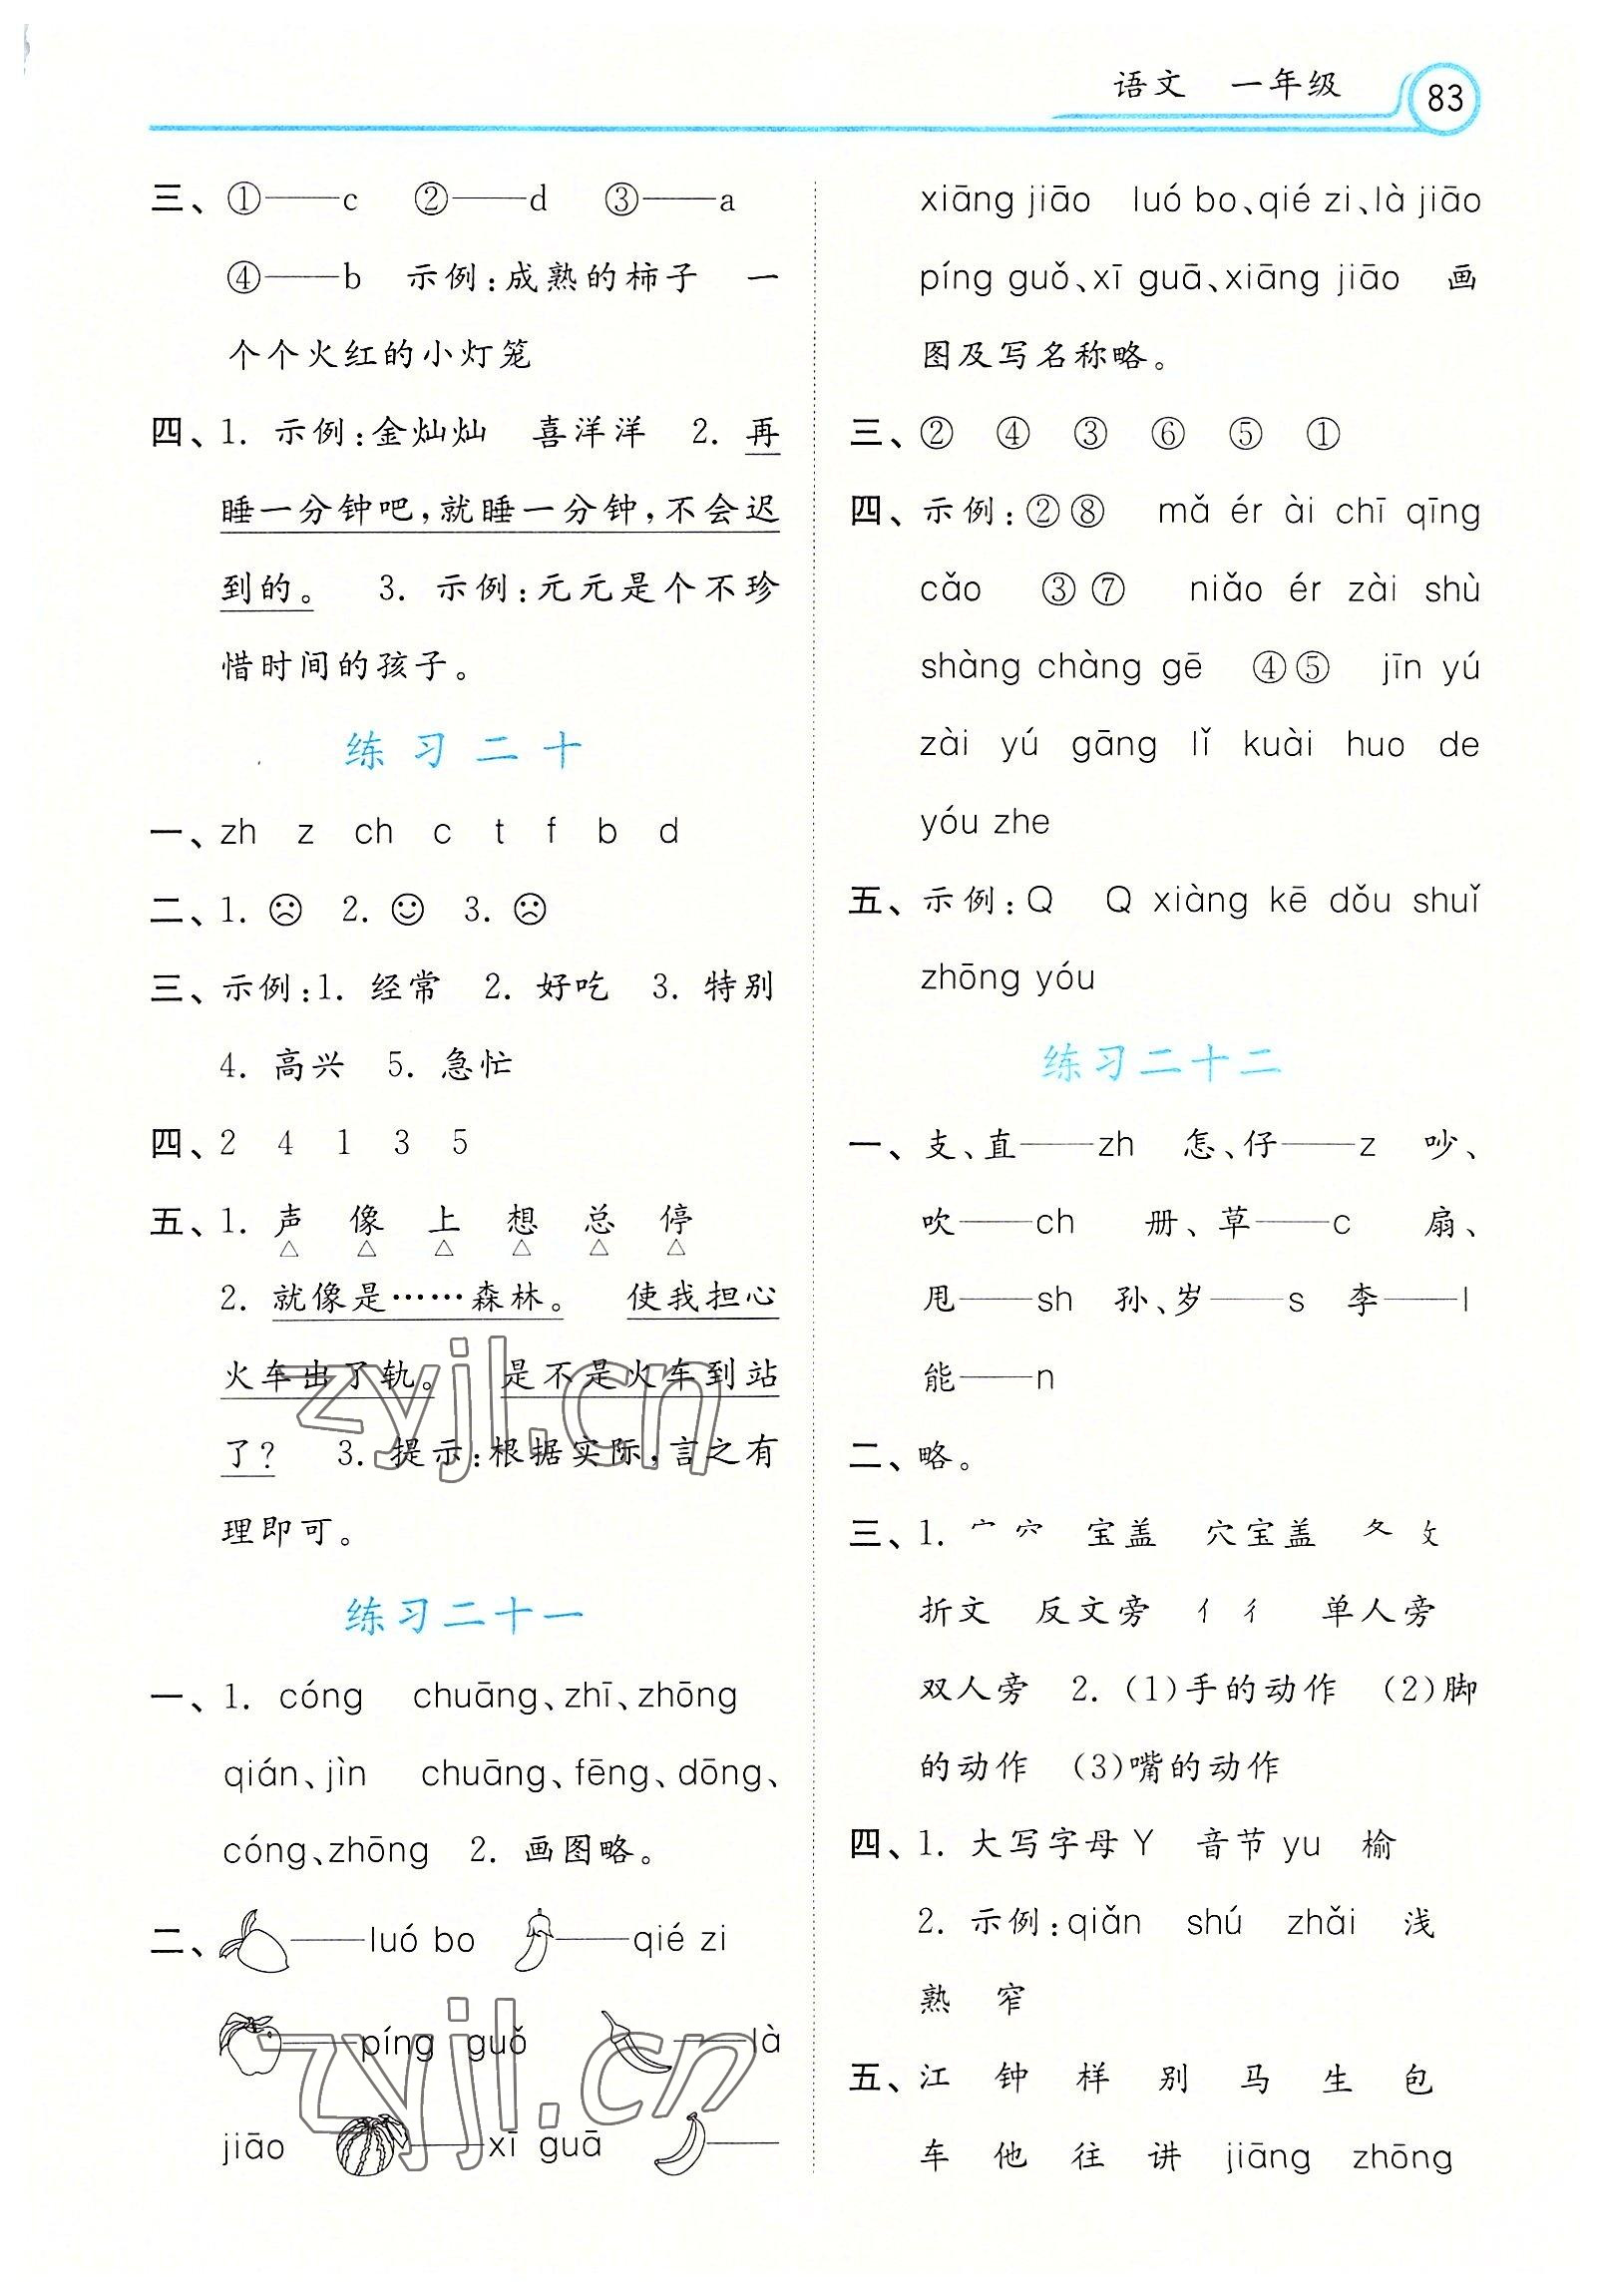 语文 一年级 83
三、①——c ②——d ③——a
④——b 示例:成熟的柿子 一
个个火红的小灯笼
四、1. 示例:金灿灿 喜洋洋 2. 再
睡一分钟吧,就睡一分钟,不会迟
到的。 3. 示例:元元是个不珍
惜时间的孩子。
练习二十
一、zh z ch c t f b d
二、1. ☹ 2. ☺ 3. ☹
三、示例:1. 经常 2. 好吃 3. 特别
4. 高兴 5. 急忙
四、2 4 1 3 5
五、1. 声 像 上 想 总 停
△ △ △ △ △ △
2. 就像是……森林。 使我担心
火车出了轨。 是不是火车到站
了? 3. 提示:根据实际,言之有
理即可。
练习二十一
一、1. cóng chuāng、zhī、zhōng
qián、jìn chuāng、fēng、dōng、
cóng、zhōng 2. 画图略。
二、——luó bo ——qié zi
——píng guǒ ——là
jiāo ——xī guā ——
xiāng jiāo luó bo、qié zi、là jiāo
píng guǒ、xī guā、xiāng jiāo 画
图及写名称略。
三、② ④ ③ ⑥ ⑤ ①
四、示例:②⑧ mǎ ér ài chī qīng
cǎo ③⑦ niǎo ér zài shù
shàng chàng gē ④⑤ jīn yú
zài yú gāng lǐ kuài huo de
yóu zhe
五、示例:Q Q xiàng kē dǒu shuǐ
zhōng yóu
练习二十二
一、支、直——zh 怎、仔——z 吵、
吹——ch 册、草——c 扇、
甩——sh 孙、岁——s 李——l
能——n
二、略。
三、1. 宀 穴 宝盖 穴宝盖 夂 攵
折文 反文旁 亻 彳 单人旁
双人旁 2. (1)手的动作 (2)脚
的动作 (3)嘴的动作
四、1. 大写字母Y 音节yu 榆
2. 示例:qiǎn shú zhǎi 浅
熟 窄
五、江 钟 样 别 马 生 包
车 他 往 讲 jiāng zhōng
zyjl.cn
zyjl.cn